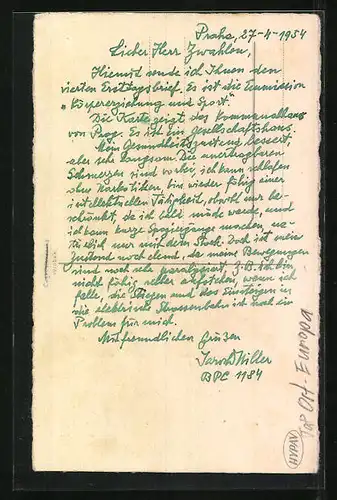 Praha, 27-4-1954
Lieber Herr Zwahlen,
Hiermit sende ich Ihnen den
vierten Ersttagsbrief. Es ist die Emission
„Körpererziehung und Sport".
Die Karte zeigt das Kommunalhaus
von Prag. Es ist ein Gesellschaftshaus.
Mein Gesundheitszustand bessert,
aber sehr langsam. Die unertragbaren
Schmerzen sind vorbei, ich kann schlafen
ohne Narkotiken, bin wieder fähig einer
intellektuellen Tätigkeit, obwohl nur be-
schränkt, da ich bald müde werde, und
ich kann kurze Spaziergänge machen, na-
türlich nur mit dem Stock. Doch ist mein
Zustand noch elend, da meine Bewegungen
sind noch sehr paralysiert. Z.B. ich bin
nicht fähig selber aufstehen, wenn ich
falle, die Stiegen und das Einsteigen in
die elektrische Strassenbahn ist noch ein
Problem für mich.
Mit freundlichen Grüßen
BPC 1184
Top Ost-Europa